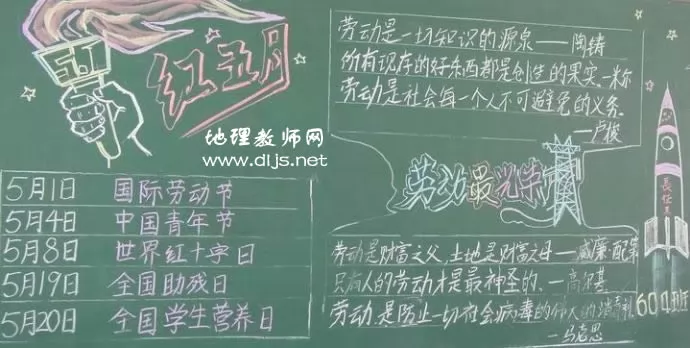 5.1
红五月
地理教师网
www.dljs.net
5月1日 国际劳动节
5月4日 中国青年节
5月8日 世界红十字日
5月19日 全国助残日
5月20日 全国学生营养日
劳动是一切知识的源泉——陶铸
所有现存的好东西都是创造的果实。米尔
劳动是社会每一个人不可避免的义务。
—卢梭
劳动最光荣
劳动是财富之父,土地是财富之母—威廉·配第
只有人的劳动才是最神圣的、—高尔基
劳动是防止一切社会病毒的伟大的消毒
—马克思
长征
604班